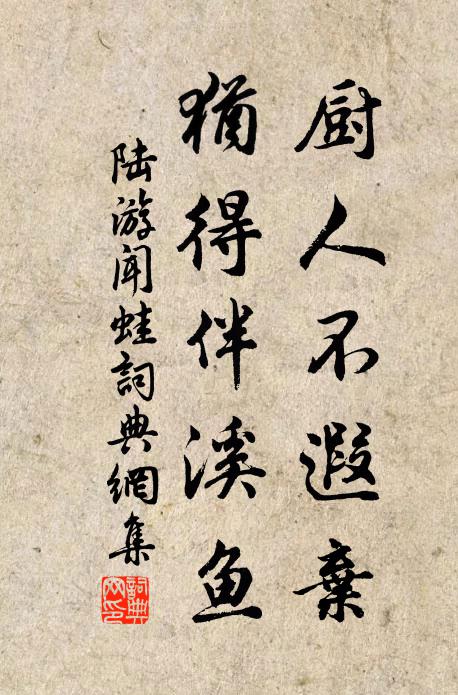 厨人不遐棄
猶得伴溪鱼
陆游闻蛙詞典網集
詞典